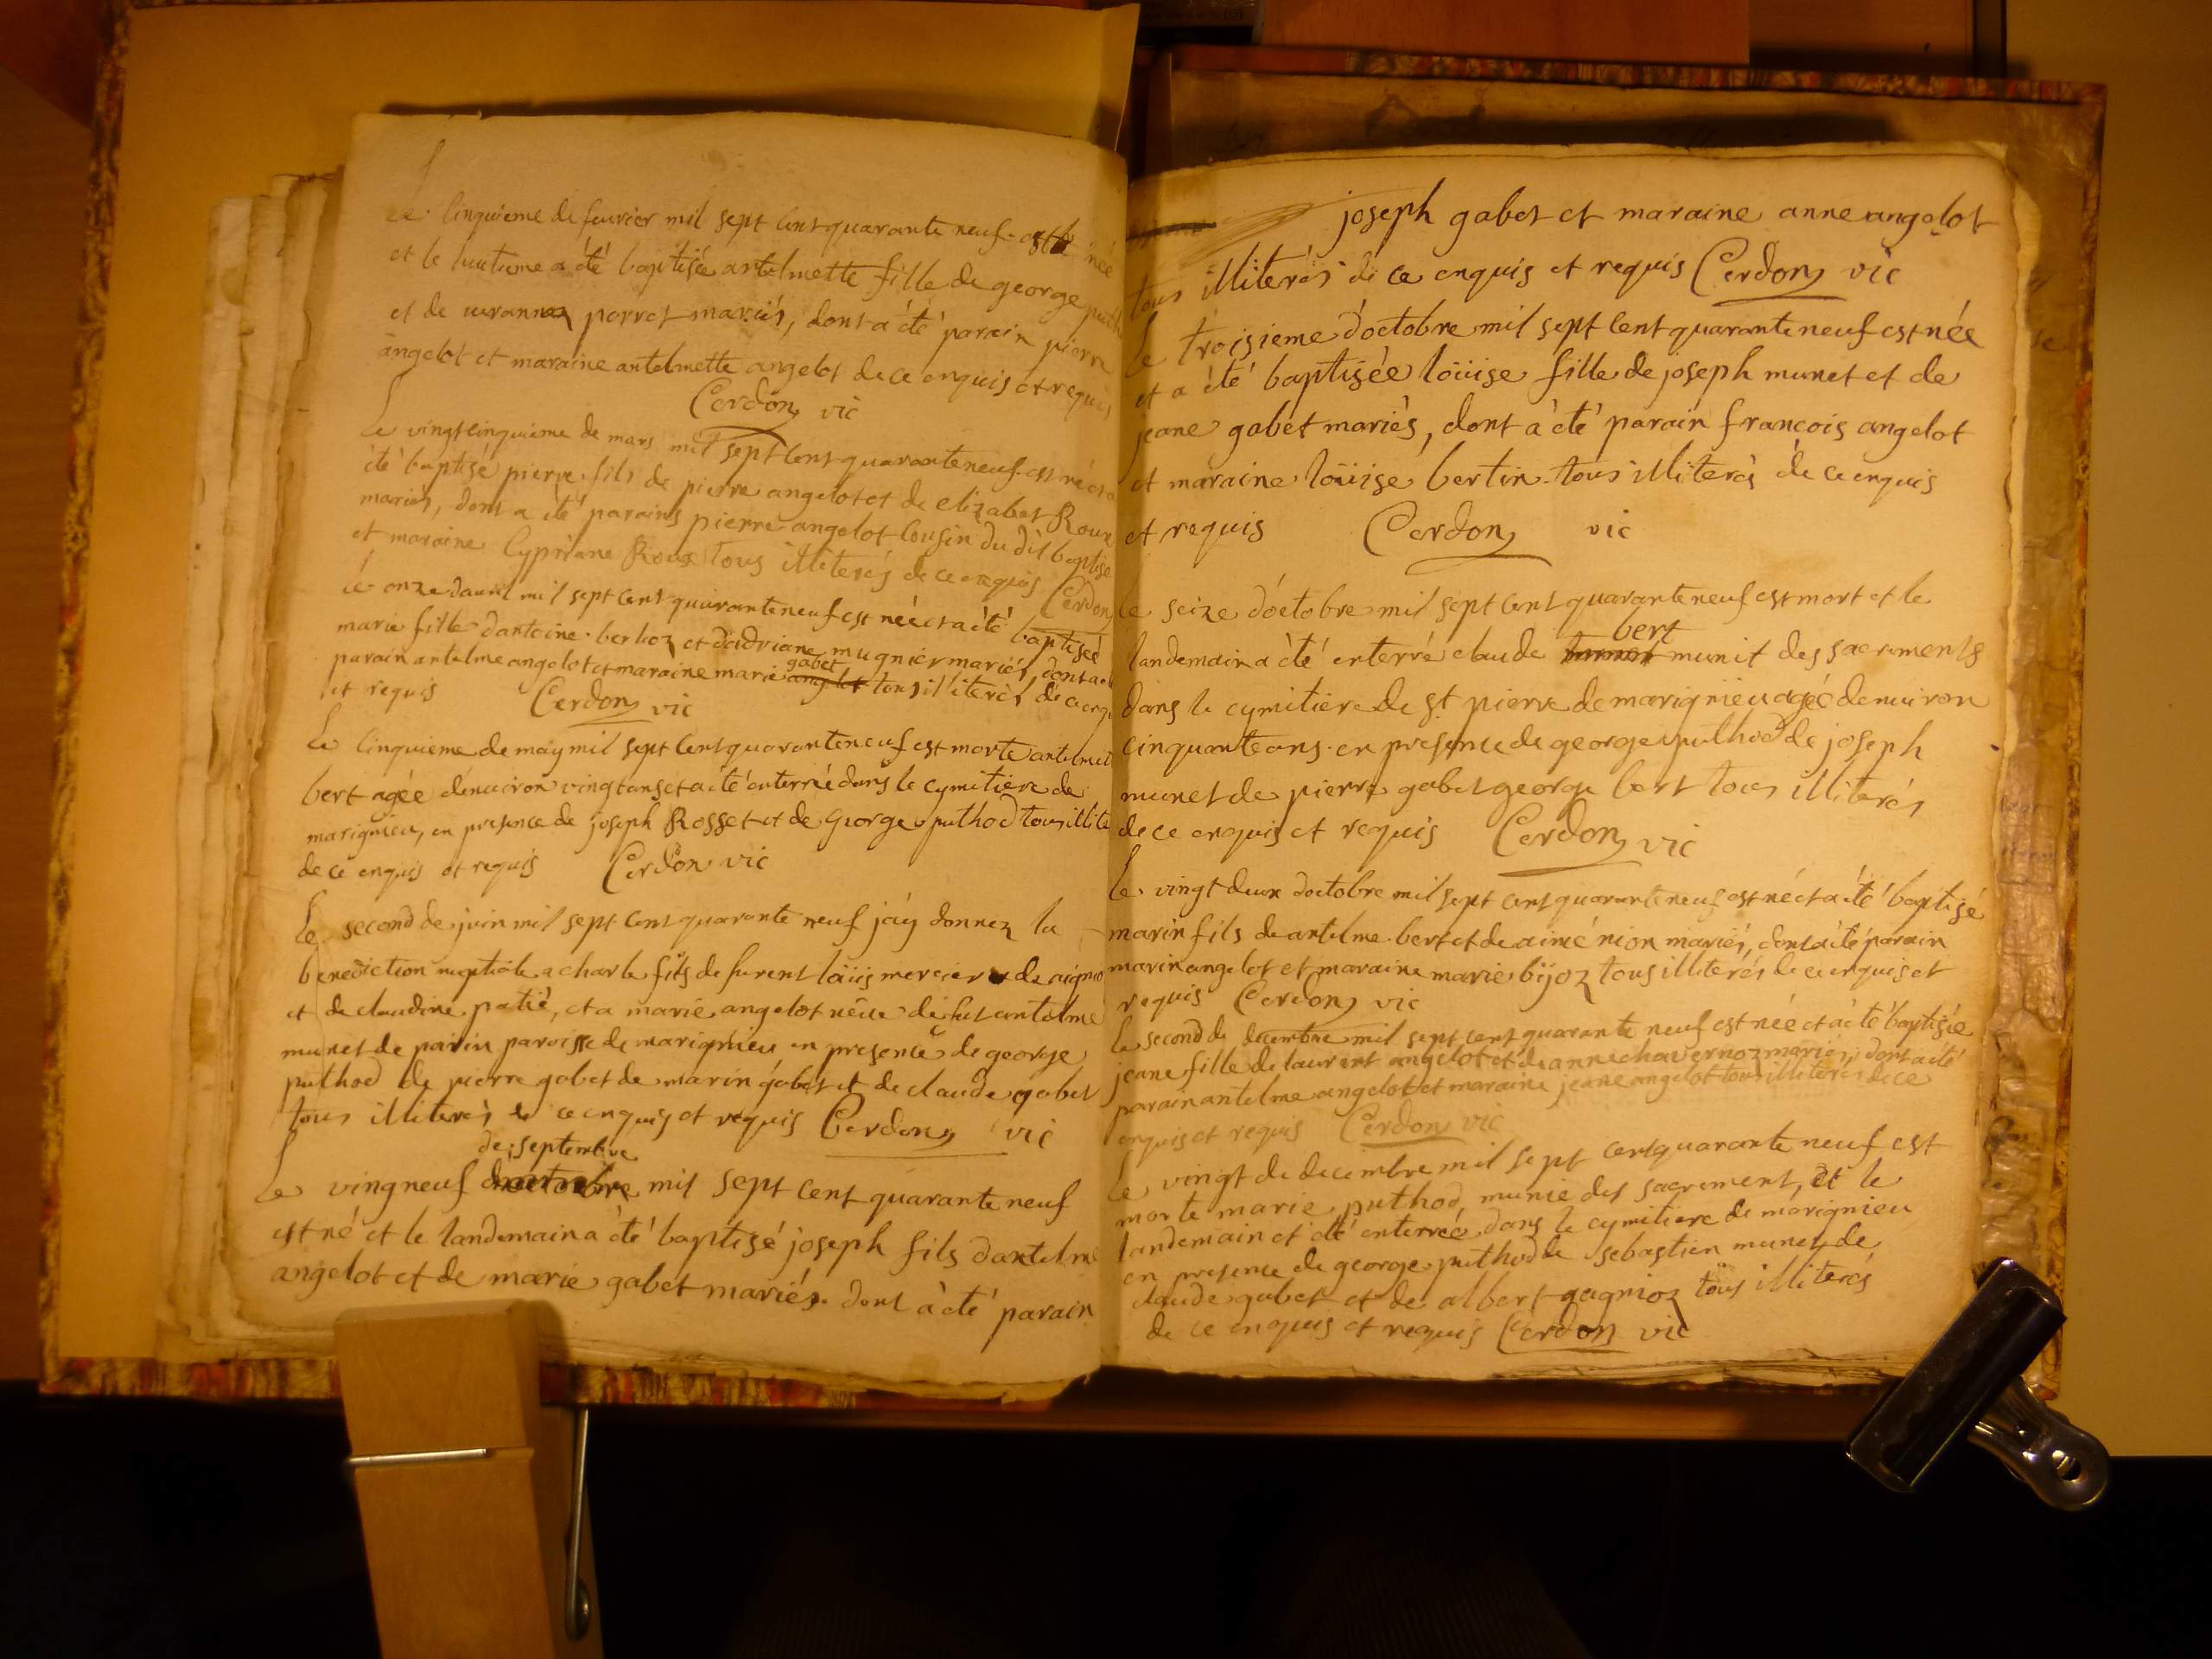 Le cinquieme de feuvrier mil sept cent quarante neuf est née
et le huitieme a été baptisée antelmette fille de george
et de perret mariés, dont a été parain pierre
angelot et maraine antelmette angelot de ce enquis et requis
Cerdon vic
Le vingtcinquieme de mars mil sept cent quarante neuf est né et a
été baptisé pierre fils de pierre angelot et de elizabet Roux
mariés, dont a été parains pierre angelot cousin du dit baptisé
et maraine Cypriane Roux tous illiterés de ce enquis Cerdon
le onze davril mil sept cent quaranteneuf est née et a été baptisée
marie fille dantoine berlioz et dadriane mugnier mariés, dont a été
gabet
parain antelme angelot et maraine marie angelot tous illiterés de ce enq
et requis Cerdon vic
Le cinquieme de may mil sept cent quaranteneuf est morte antelmet
bert agée denuiron vingt ans et a été enterrée dans le cymitiere de
marignieu, en presence de joseph Rosset et de George puthod tous illite
de ce enquis et requis Cerdon vic
Le second de juin mil sept cent quarante neuf jáy donnez la
benediction nuptiale a charle fils de furent loüis mercier de
et de claudine patié, et a marie angelot de antelme
munet de parin paroisse de marignieu en presence de george
puthod de pierre gabet de marin gabet et de claude gabet
tous illiterés de ce enquis et requis Cerdon vic
de septembre
Le vingneuf doctobre mil sept cent quarante neuf
est né et le landemain a été baptisé joseph fils dantelme
angelot et de marie gabet mariés. dont à été parain
joseph gabet et maraine anne angelot
tous illiterés de ce enquis et requis Cerdon vic
Le troisieme doctobre mil sept cent quaranteneuf est née
et a été baptisée loüise fille de joseph munet et de
jeane gabet mariés, dont à été parain francois angelot
et maraine loüise bertin tous illiterés de ce enquis
et requis Cerdon vic
le seize doctobre mil sept cent quaranteneuf est mort et le
bert
landemain a été enterré claude munit des sacrements
dans le cymitiere de st pierre de marignieu agé denuiron
cinquante ans en presence de george puthod de joseph
munet de pierre gabet george bert tous illiterés
de ce enquis et requis Cerdon vic
Le vingt deux doctobre mil sept cent quaranteneuf est né et a été baptisé
marin fils de antelme bert et de aimé nion mariés, dont a été parain
marin angelot et maraine marie bijoz tous illiterés de ce enquis et
requis Cerdon vic
Le second de decembre mil sept cent quarante neuf est née et a été baptisée
jeane fille de laurent angelot et de anne chavernoz mariés, dont a été
parain antelme angelot et maraine jeane angelot tous illiterés de ce
enquis et requis Cerdon vic
Le vingt de decembre mil sept cent quarante neuf est
morte marie puthod munie des sacrement, et le
landemain et été enterreé dans le cymitiere de marignieu
en presence de george puthod de sebastien munet de
claude gabet et de albert gagnioz tous illiterés
de ce enquis et requis Cerdon vic